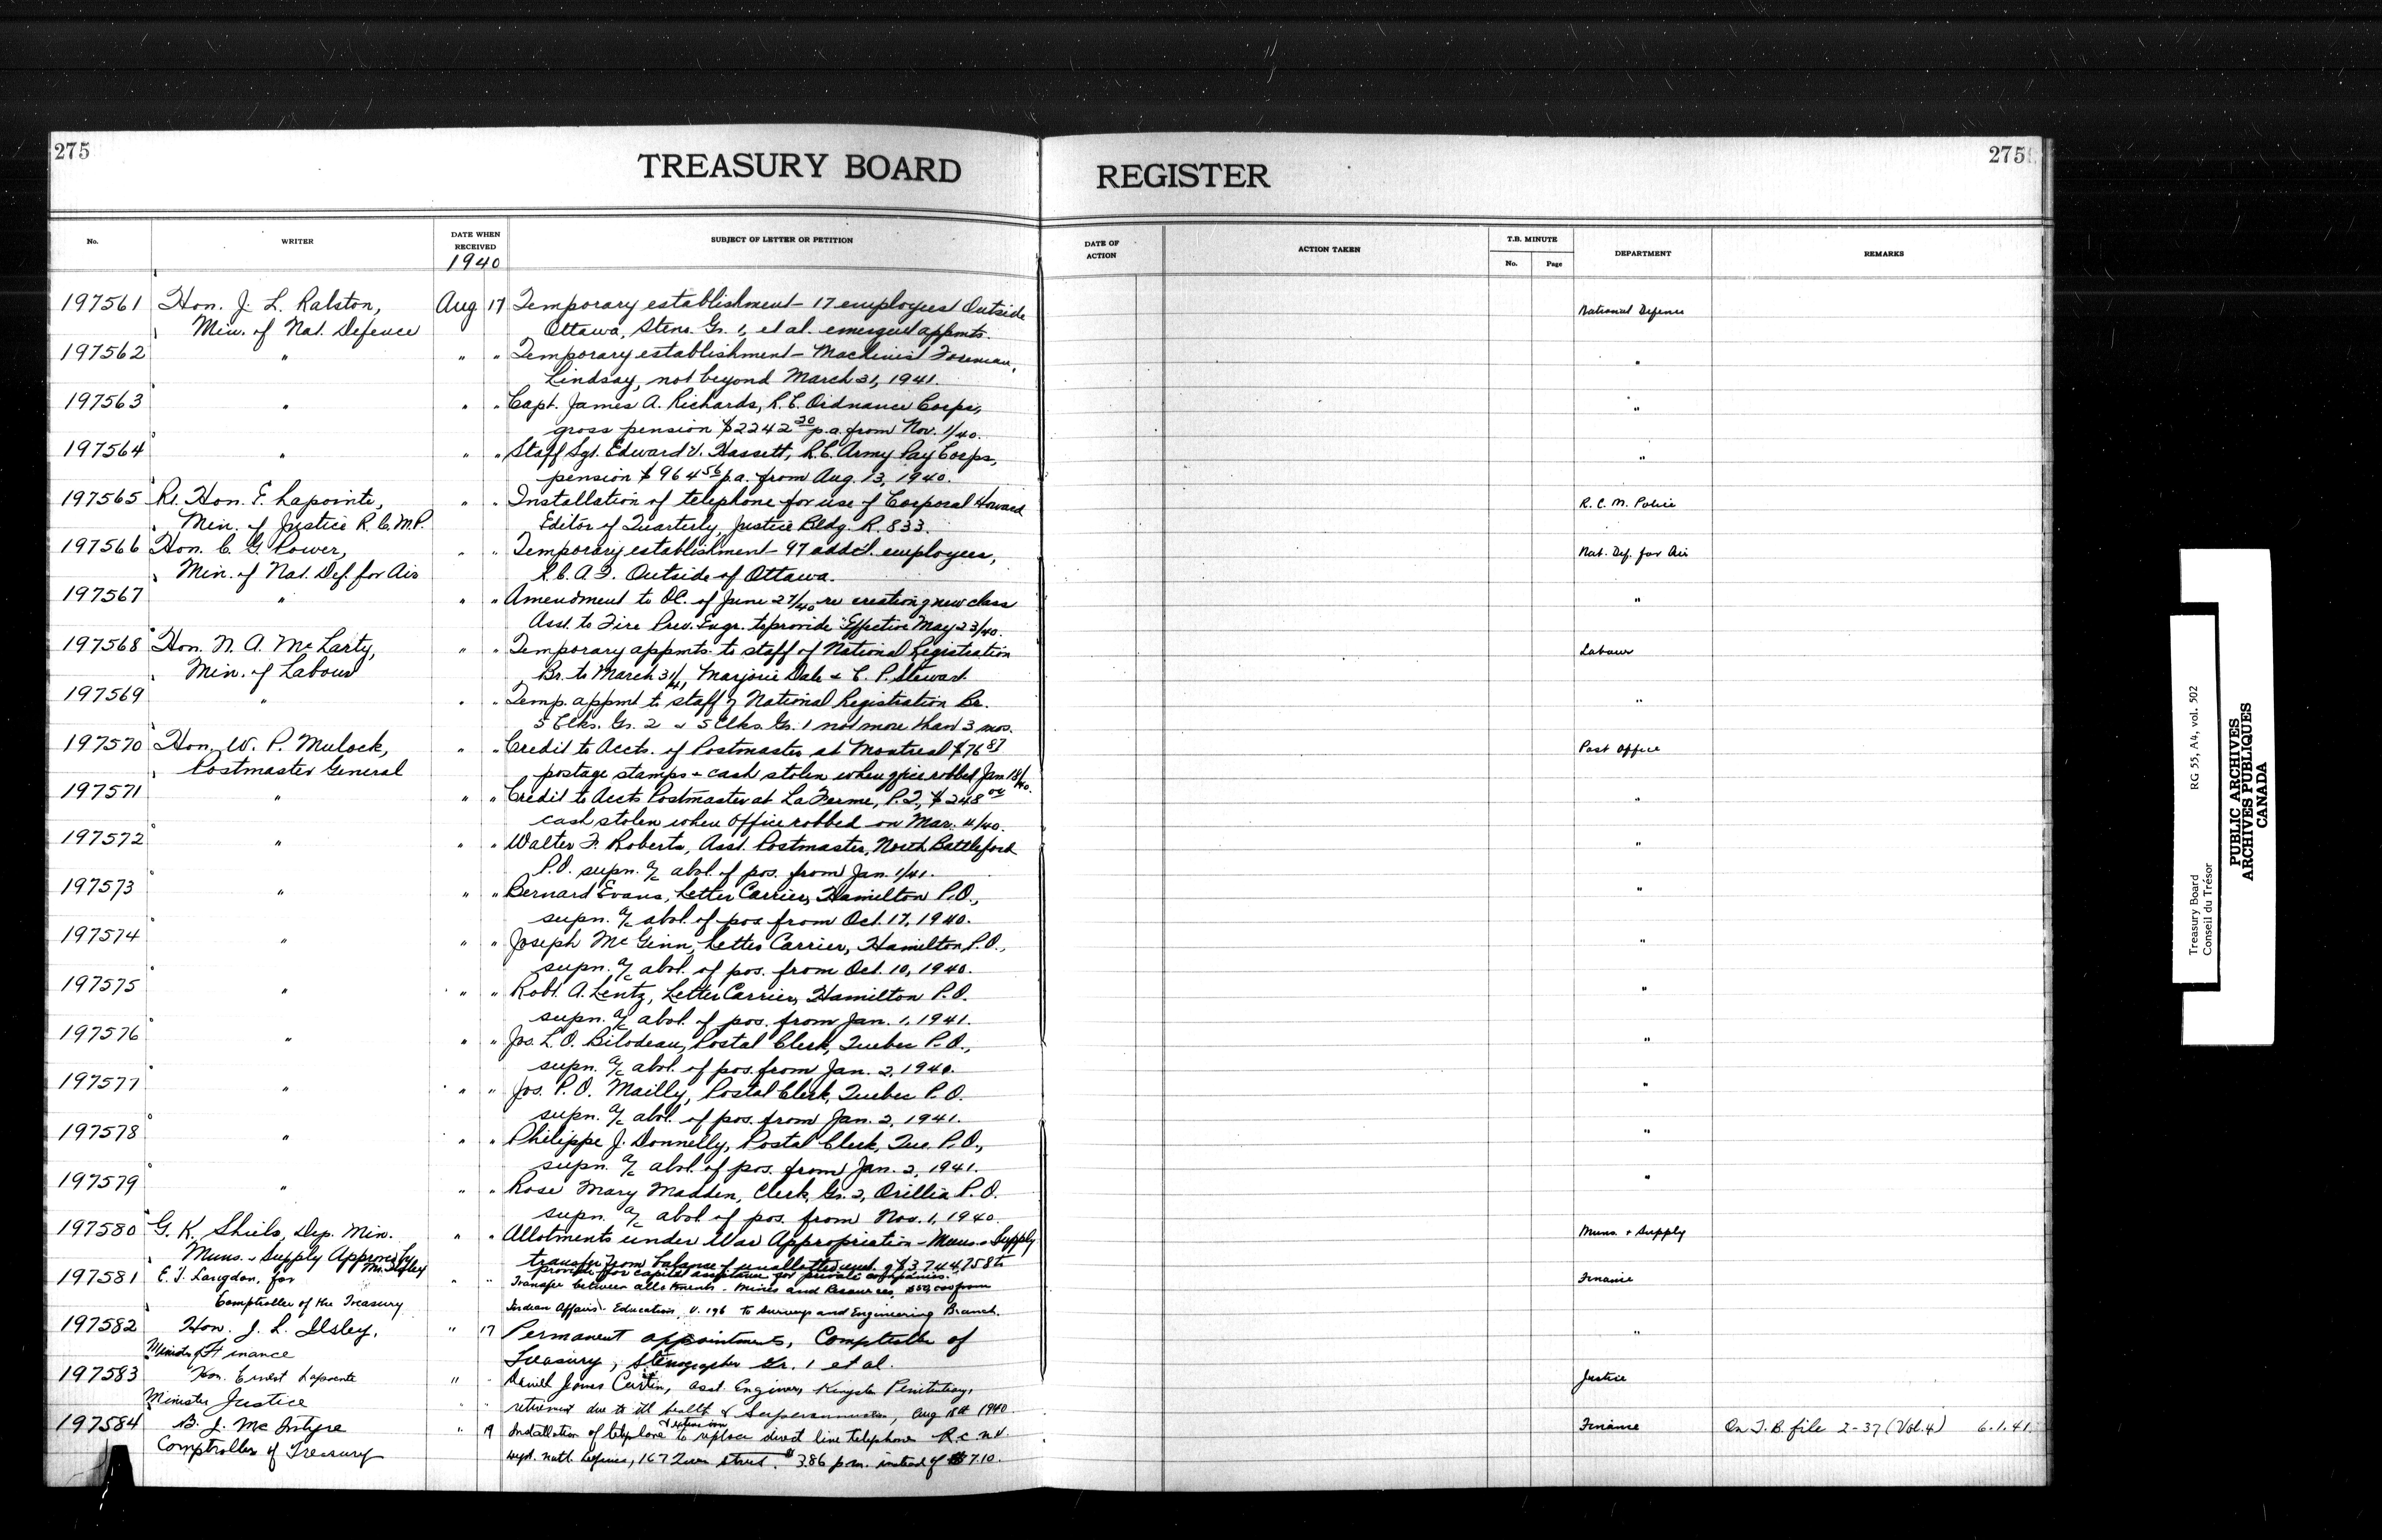 275
TREASURY BOARD REGISTER
275
No. WRITER DATE WHEN RECEIVED SUBJECT OF LETTER OR PETITION DATE OF ACTION ACTION TAKEN T.B. MINUTE No. Page DEPARTMENT REMARKS
1940
197561 Hon. J. L. Ralston, Aug 17 Temporary establishment - 17 employees Outside National Defence
Min. of Nat. Defence Ottawa, Steno. Gr. 1, et al. appmts.
197562 " " " Temporary establishment - Machinist Foreman, "
Lindsay, not beyond March 31, 1941.
197563 " " " Capt. James A. Richards, R.C. Ordnance Corps, "
gross pension $2242 20 p.a. from Nov. 1/40.
197564 " " " Staff Sgt. Edward V. Hassett, R.C. Army Pay Corps, "
pension $964 56 p.a. from Aug. 13, 1940.
197565 Rt. Hon. E. Lapointe, " " Installation of telephone for use of Corporal Howard R. C. M. Police
Min. of Justice R.C.M.P. Editor of Quarterly, Justice Bldg. R. 833.
197566 Hon. C. G. Power, " " Temporary establishment - 97 add'l. employees, Nat. Def. for Air
Min. of Nat. Def. for Air R.C.A.F. Outside of Ottawa.
197567 " " " Amendment to OC. of June 27/40 re creating new class "
Asst. to Fire Prev. Engr. to provide "Effective May 23/40.
197568 Hon. N. A. McLarty, " " Temporary appmts. to staff of National Registration Labour
Min. of Labour Br. to March 31/41, Marjorie Dale & C. P. Stewart.
197569 " " " Temp. appmt to staff of National Registration Br. "
5 Clks. Gr. 2 & 5 Clks. Gr. 1 not more than 3 mos.
197570 Hon. W. P. Mulock, " " Credit to Accts. of Postmaster at Montreal $76 87 Post Office
Postmaster General postage stamps & cash stolen when office robbed Jan 18/40.
197571 " " " Credit to Accts Postmaster at La Ferme, P.Q., $248 04 "
cash stolen when office robbed on Mar. 4/40.
197572 " " " Walter F. Roberts, Asst. Postmaster, North Battleford "
P.O. supn. a/c abol. of pos. from Jan. 1/41.
197573 " " " Bernard Evans, Letter Carrier, Hamilton P.O., "
supn. a/c abol. of pos. from Oct. 17, 1940.
197574 " " " Joseph McGinn, Letter Carrier, Hamilton, P.O., "
supn. a/c abol. of pos. from Oct. 10, 1940.
197575 " " " Robt. A. Lentz, Letter Carrier, Hamilton P.O. "
supn. a/c abol. of pos. from Jan. 1, 1941.
197576 " " " Jos. L. O. Bilodeau, Postal Clerk, Quebec P.O., "
supn. a/c abol. of pos. from Jan. 2, 1940.
197577 " " " Jos. P. O. Mailly, Postal Clerk, Quebec P.O. "
supn. a/c abol. of pos. from Jan. 2, 1941.
197578 " " " Philippe J. Donnelly, Postal Clerk, Que. P.O., "
supn. a/c abol. of pos. from Jan. 2, 1941.
197579 " " " Rose Mary Madden, Clerk, Gr. 2, Orillia P.O. "
supn. a/c abol. of pos. from Nov. 1, 1940.
197580 G. K. Sheils, Dep. Min. " " Allotments under War Appropriation - Muns. & Supply Muns. & Supply
Muns. & Supply Approved by Mr. Ilsley transfer from balance of unallotted of $3,744,758 to
provide for capital assistance for private companies.
197581 E. J. Langdon, for " " Transfer between allotments - Mines and Resources, $50,000 from Finance
Comptroller of the Treasury Indian Affairs - Education, V. 196 to Surveys and Engineering Branch.
197582 Hon. J. L. Ilsley, " 17 Permanent appointments, Comptroller of "
Minister of Finance Treasury, Stenographer Gr. 1 et al.
197583 Hon. Ernest Lapointe " " James Curtin, Asst. Engineer, Kingston Penitentiary, Justice
Minister Justice " " retirement due to ill health & Superannuation, Aug 18th 1940.
197584 B. J. McIntyre " 19 Installation of telephone & extension to replace direct line telephone R.C.N.V. Finance On T.B. file 2-37 (Vol. 4) 6.1.41.
Comptroller of Treasury Dept. Natl. Defence, 167 Queen street. $3.86 p.m. instead of $7.10.
Treasury Board RG 55, A4, vol. 502
Conseil du Trésor
PUBLIC ARCHIVES
ARCHIVES PUBLIQUES
CANADA